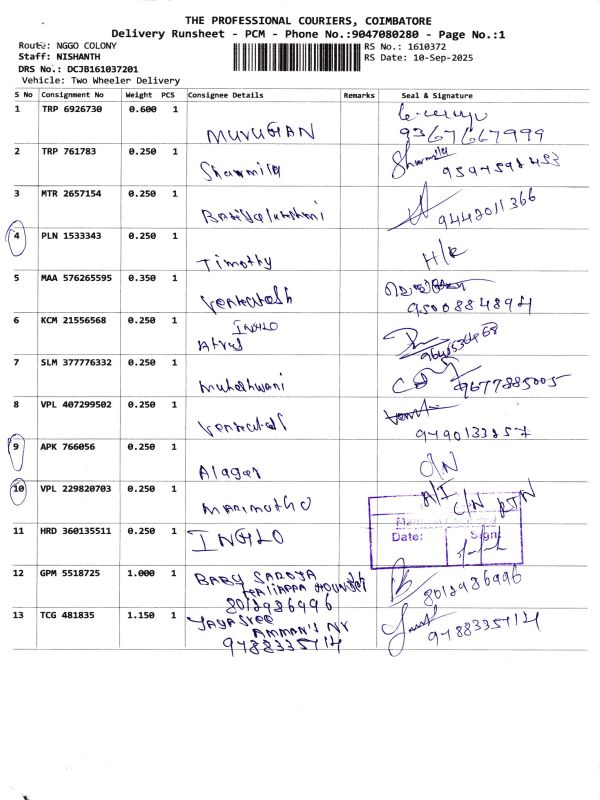 THE PROFESSIONAL COURIERS, COIMBATORE
Delivery Runsheet - PCM - Phone No.:9047080280 - Page No.:1
Route: NGGO COLONY
RS No.: 1610372
Staff: NISHANTH
RS Date: 10-Sep-2025
DRS No.: DCJB161037201
Vehicle: Two Wheeler Delivery
S No Consignment No Weight PCS Consignee Details Remarks Seal & Signature
1 TRP 6926730 0.600 1
MURUGAN 9367667999
2 TRP 761783 0.250 1 Sharmila
Sharmila
3 MTR 2657154 0.250 1
9442011366
4 PLN 1533343 0.250 1
Timothy H/R
5 MAA 576265595 0.350 1
Venkatesh 9500884894
6 KCM 21556568 0.250 1 INGLO
7 SLM 377776332 0.250 1
9677885005
8 VPL 407299502 0.250 1
9790133257
9 APK 766056 0.250 1
Alagar O/N
10 VPL 229820703 0.250 1 A/I C/N RTN
Marimuthu
11 HRD 360135511 0.250 1 INGLO
Date: Sign:
12 GPM 5518725 1.000 1 BABY SAROJA
8012986996 8012986996
13 TCG 481835 1.150 1 JAYASREE
AMMAN'S NY
9788335714 9788335714